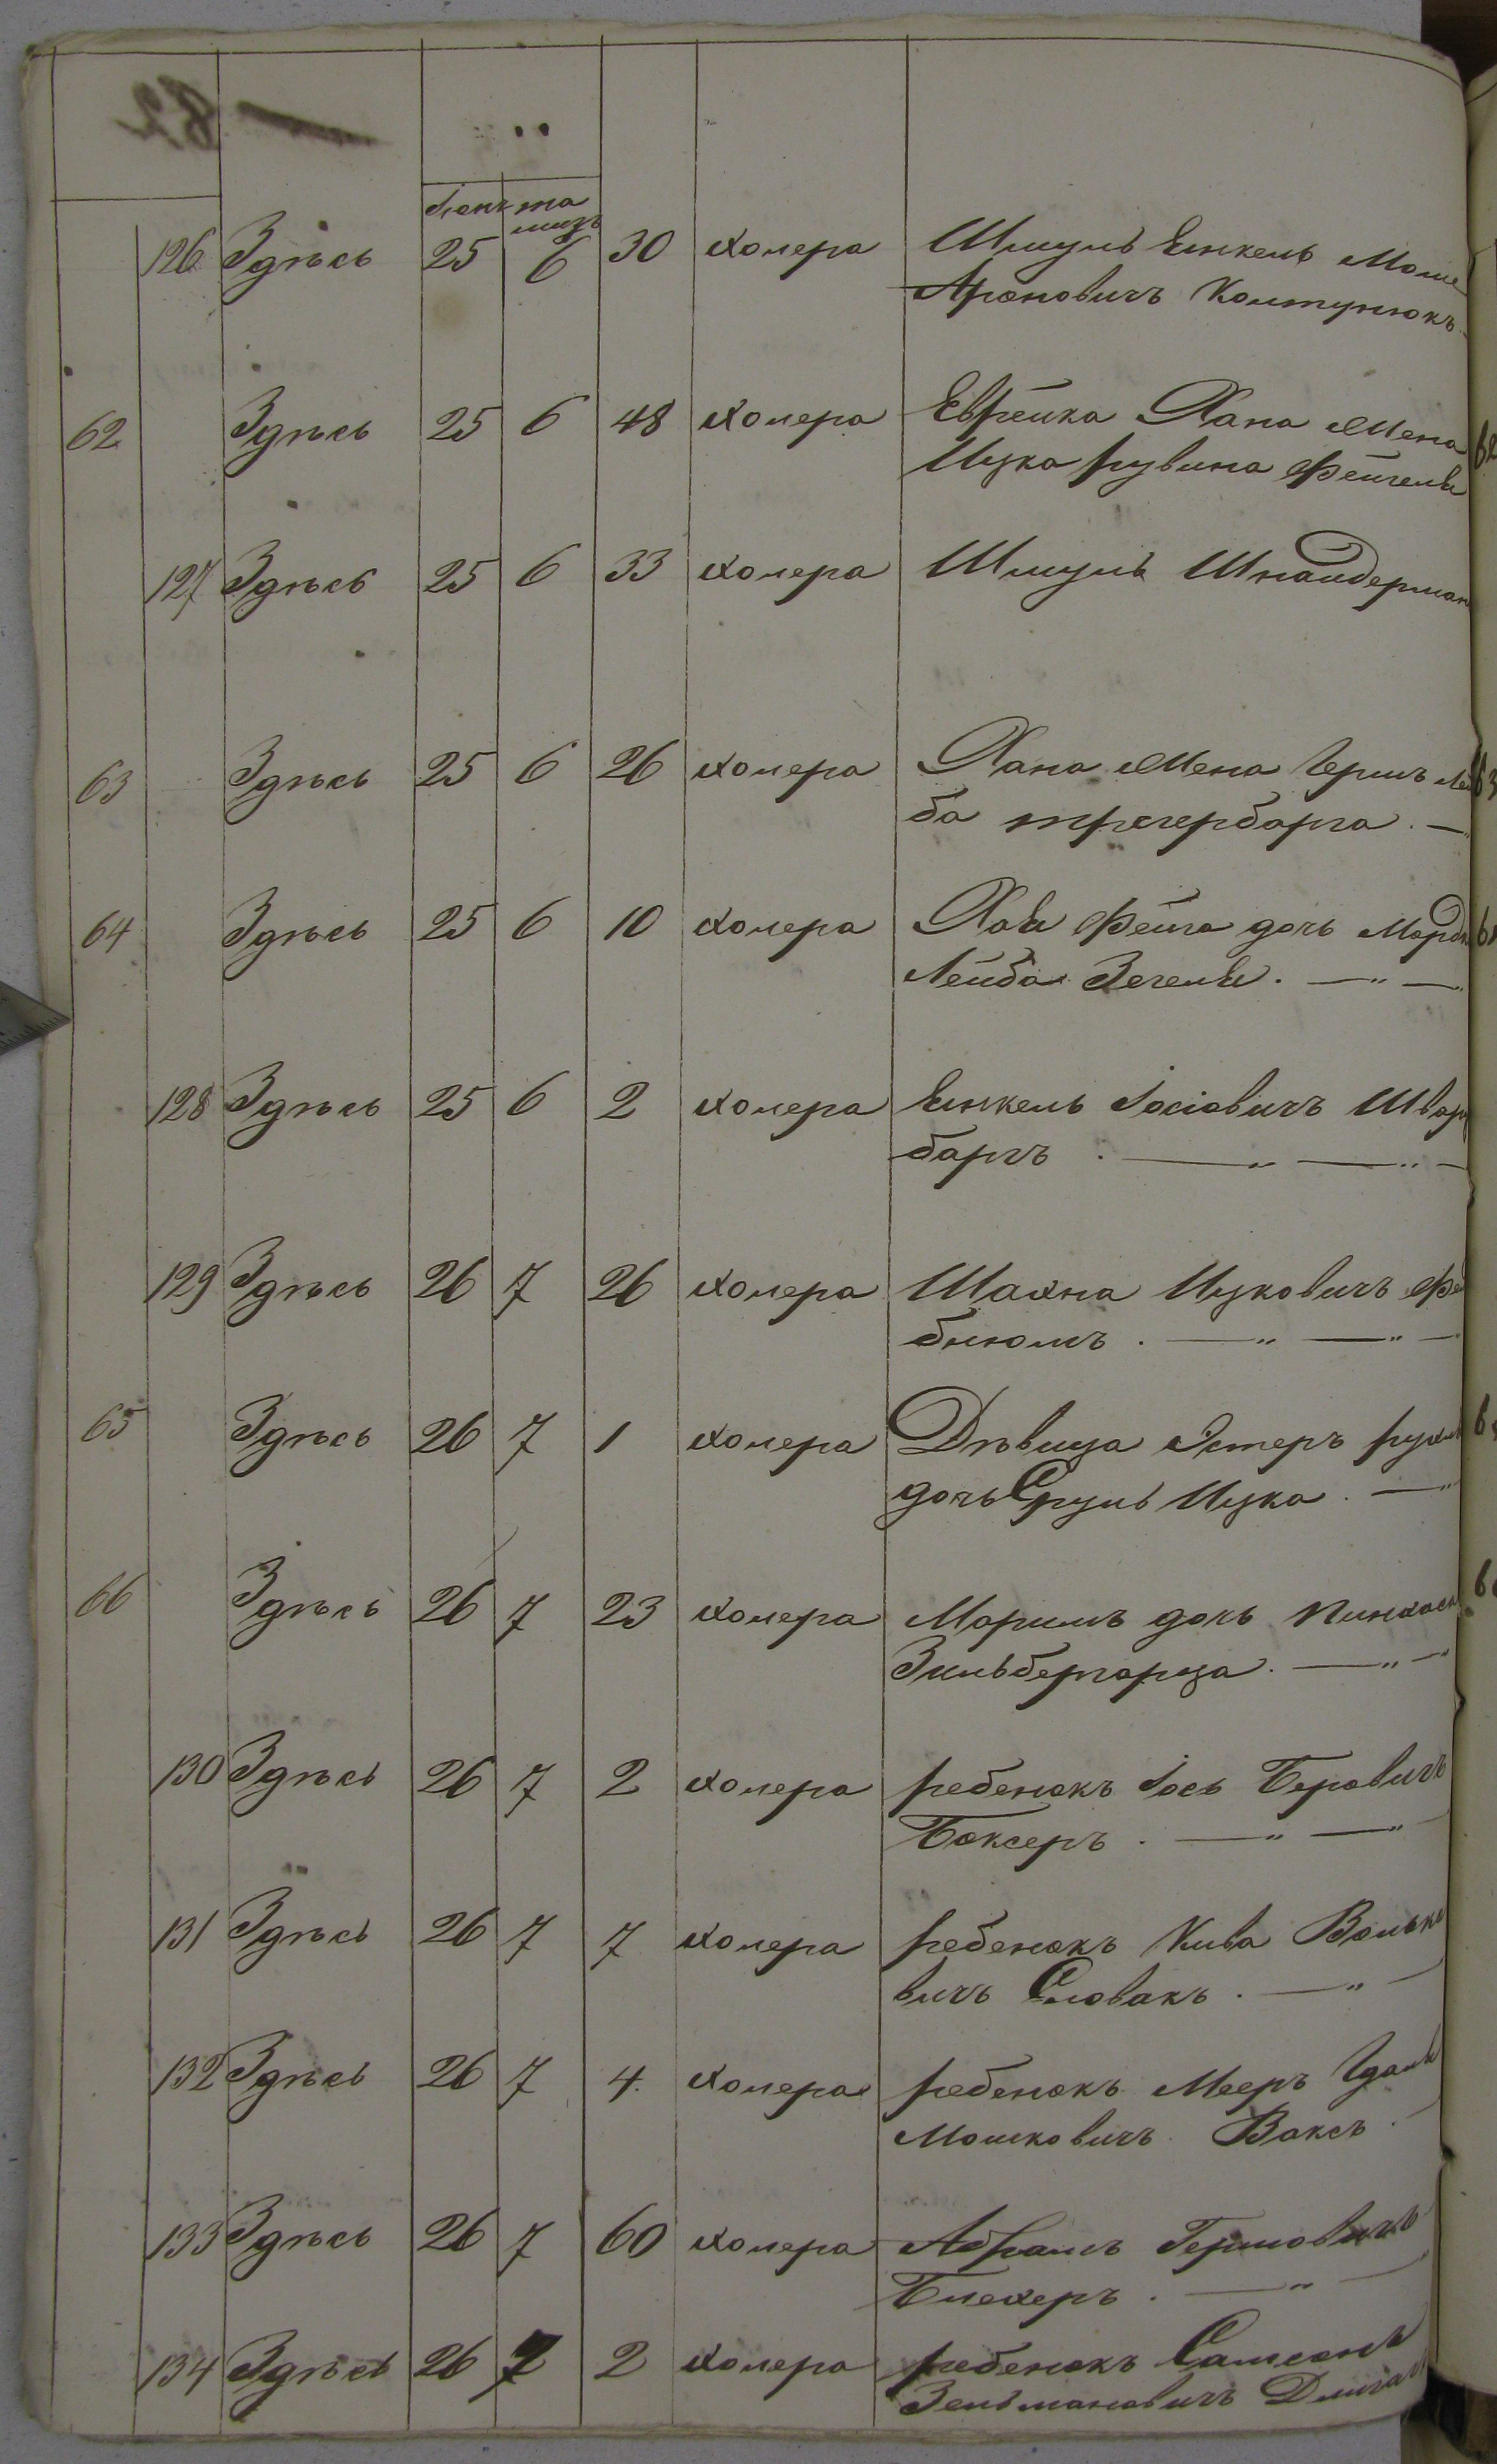 82
126 Здѣсь 25 6 30 холера Шмуль Енкель Моше
Ароновичъ Колтунюкъ
62 Здѣсь 25 6 48 холера Еврейка Хана Мена
Ицка Рувина Фейгель
127 Здѣсь 25 6 33 холера Шмуль Шнайдерман
63 Здѣсь 25 6 26 холера Хана Мена Гершъ Лей
ба трегербарга
64 Здѣсь 25 6 10 холера Хая Фейга дочь Мордк
Лейба Зегеля
128 Здѣсь 25 6 2 холера Енкель Іосіовичъ Швар
баргъ
129 Здѣсь 26 7 26 холера Шахна Ицковичъ
65 Здѣсь 26 7 1 холера Дѣвица Эстеръ рухл
дочь Сруль Ицка
66 Здѣсь 26 7 23 холера Маримъ дочь Пинхаса
Зильбергарца
130 Здѣсь 26 7 2 холера ребенокъ Іось Беровичъ
Боксеръ
131 Здѣсь 26 7 7 холера ребенокъ Кива Волько
вичъ Словакъ
132 Здѣсь 26 7 4 холера ребенокъ Мееръ Гдаль
Мошковичъ Ваксъ
133 Здѣсь 26 7 60 холера Абрамъ Гершовичъ
Блехеръ
134 Здѣсь 26 7 2 холера ребенокъ Самсонъ
Зельмановичъ